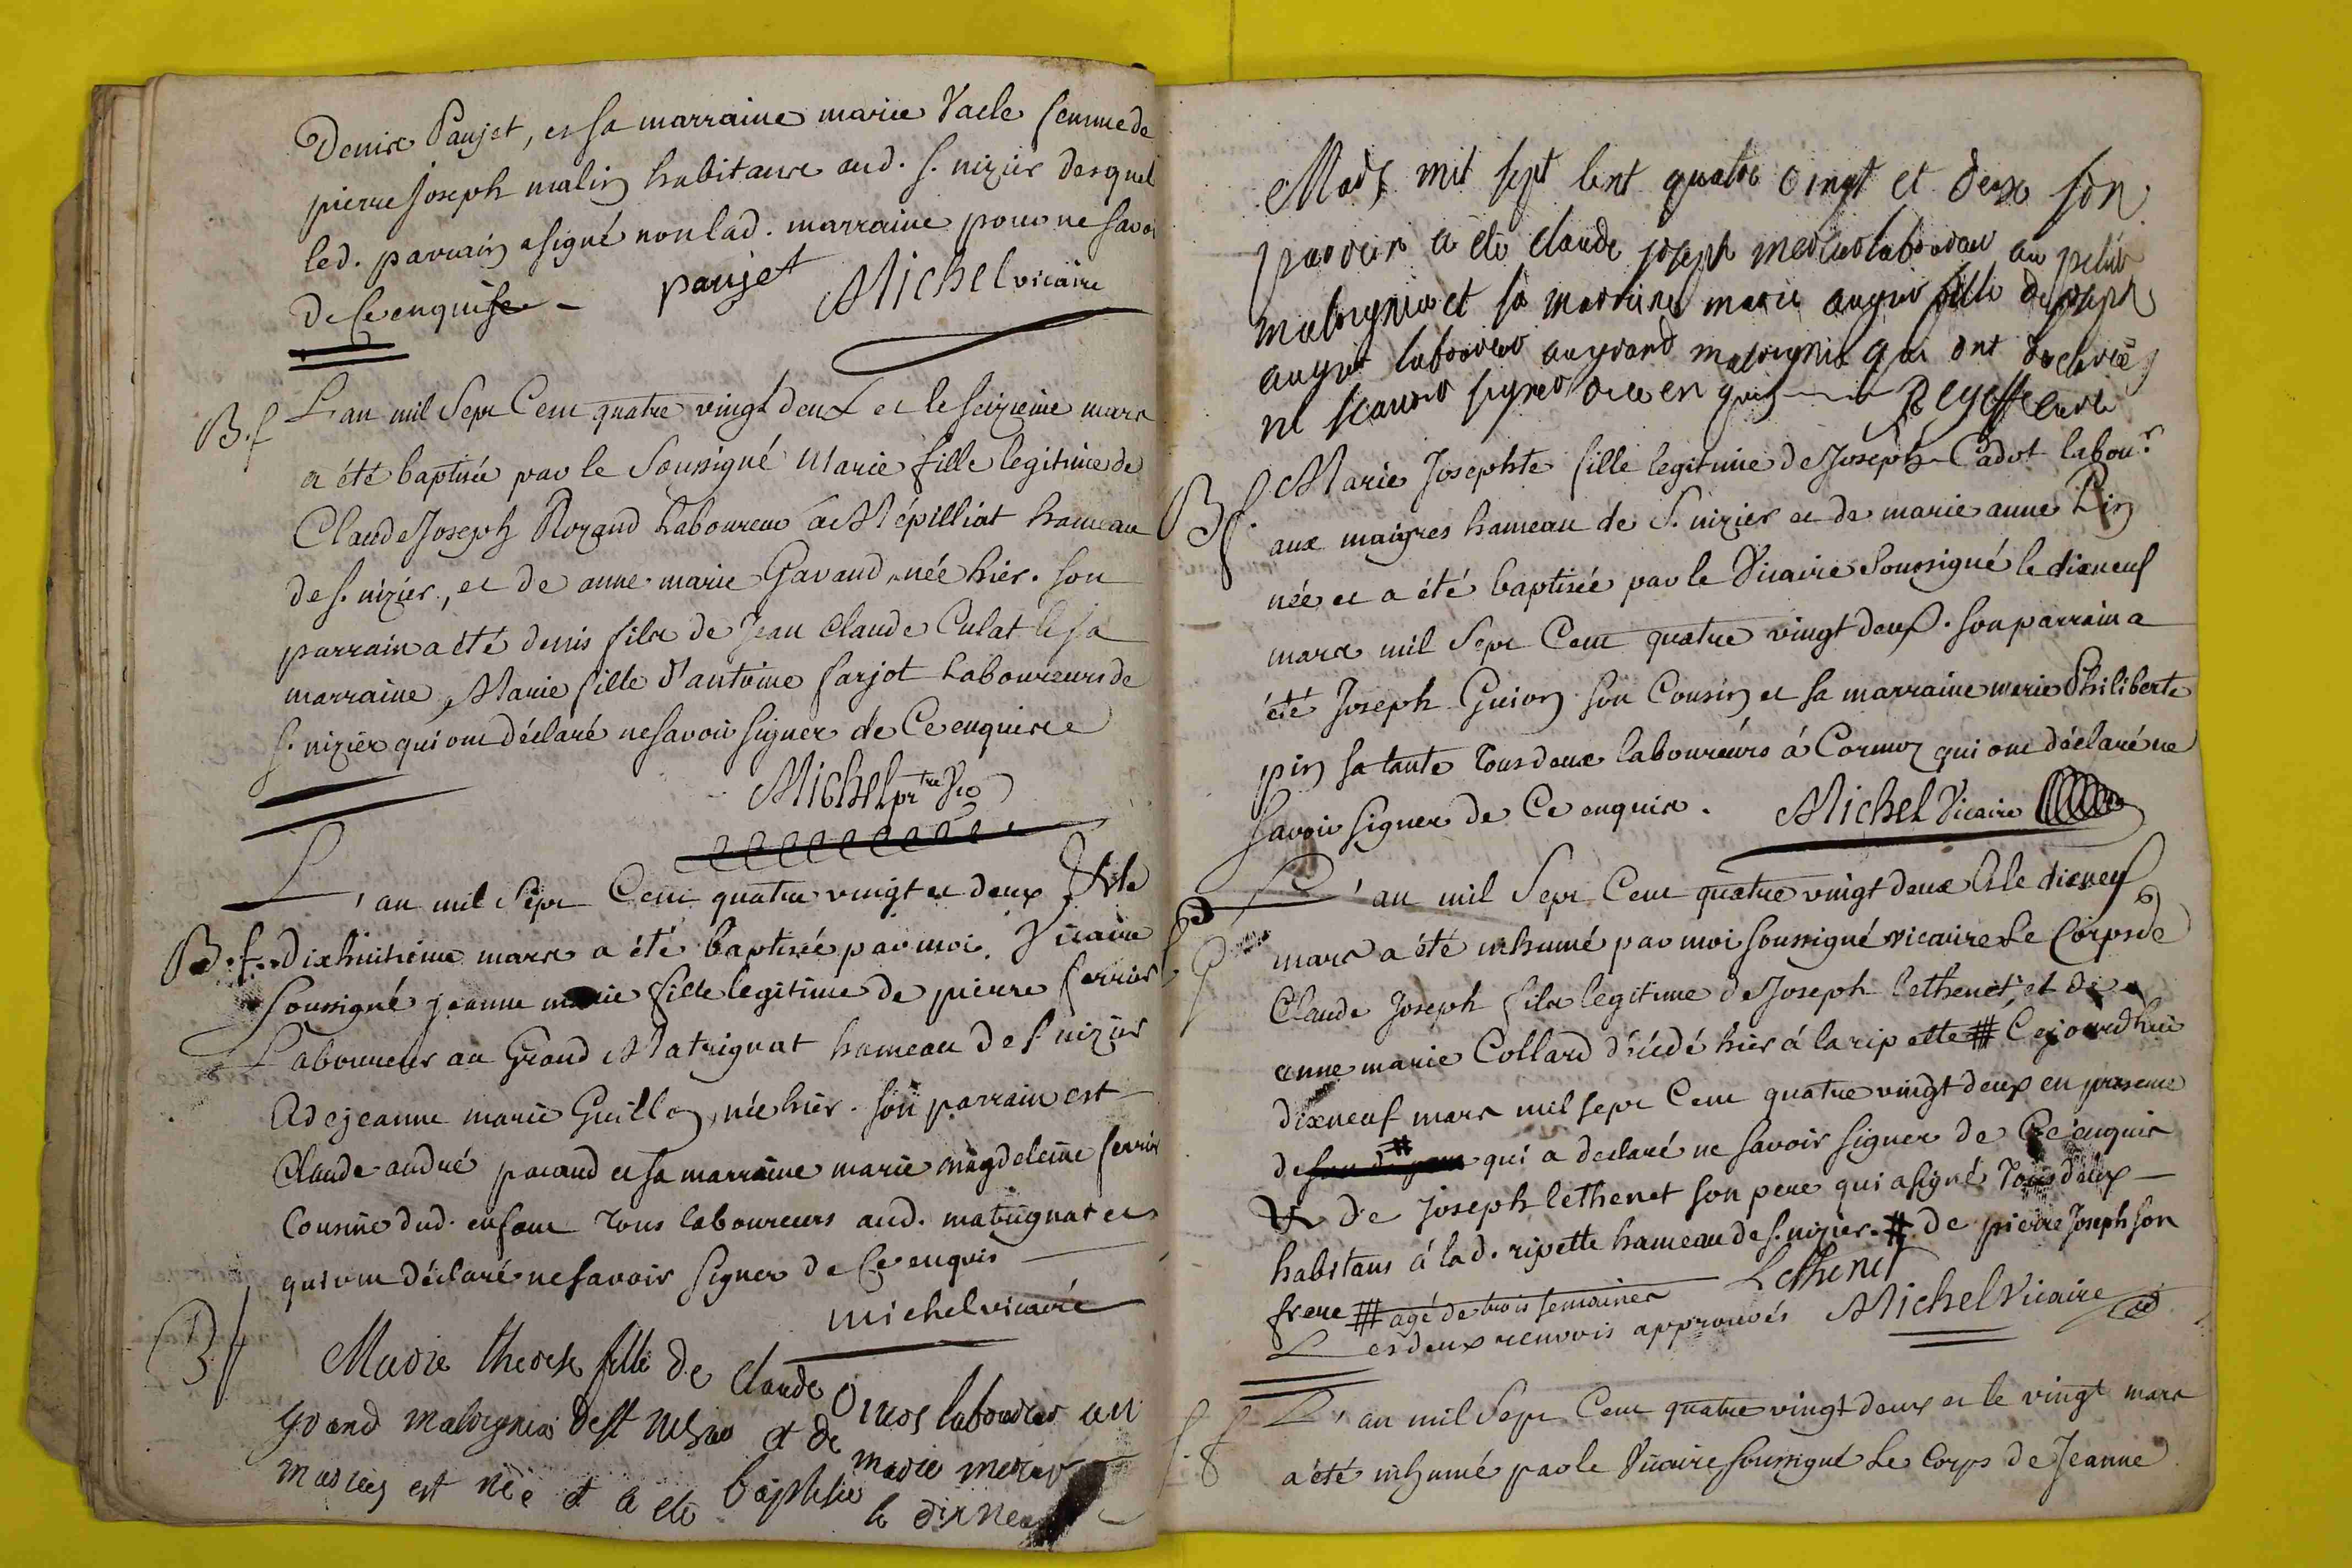 Denise Paujet, et sa marraine marie Vacle femme de
pierre joseph malin habitans aud. s. nizier desquel
led. parrain a signé non lad. marraine pour ne savoi
de Ce enquise - paujet Michel vicaire
B. f L'an mil Sept Cent quatre vingt deux et le seizieme mars
a été baptisée par le Soussigné Marie fille legitime de
Claude Joseph Rozand Laboureur a Mépilliat hameau
de s. nizier, et de anne marie Gavand, née hier. son
parrain a été denis fils de Jean Claude Culat et sa
marraine, Marie fille d'antoine farjot Laboureurs de
s. nizier qui ont déclaré ne savoir signer de Ce enquise
Michel ptre Vic
L'an mil Sept Cent quatre vingt et deux & le
B. f. dixhuitieme mars a été baptisée par moi Vicaire
Soussigné jeanne marie fille legitime de pierre ferrier
Laboureur au Grand Matrignat hameau de s. nizier
& de jeanne marie Guillon, née hier. son parrain est
Claude andré pacaud et sa marraine marie magdeleine ferrier
Cousine dud. enfant Tous laboureurs aud. matrignat et
qui ont déclaré ne savoir signer de Ce enquis
michel vicaire
B f Marie therese fille de Claude laboureur au
grand de st et de marie mercier
mariés est née et a eté baptisée le dixneuf
Mars mil sept cent quatre vingt et deux son
parrein a eté claude joseph mercier laboureur au petit
et sa marreine marie auger fille de joseph
auger laboureur au grand qui ont declaré
ne scauoir signer de ce enquis Regeffe curé
B f. Marie Josephte fille legitime de Joseph Cadot labour.
aux maigres hameau de s. nizier et de marie anne Pin
née et a été baptisée par le Vicaire Soussigné le dixneuf
mars mil Sept Cent quatre vingt deux. son parrain a
été Joseph Guion son Cousin et sa marraine marie Philiberte
pin sa tante Tous deux laboureurs á Cormoz qui ont déclaré ne
savoir signer de Ce enquis. Michel Vicaire
L'an mil Sept Cent quatre vingt deux & le dixneuf
mars a été inhumé par moi soussigné vicaire Le Corps de
Claude Joseph fils legitime de Joseph lethenet et de
anne marie Collard décédé hier á la ripette # Cejourdhui
dixneuf mars mil sept Cent quatre vingt deux en presence
de # qui a declaré ne savoir signer de Ce enquis
& de joseph lethenet son pere qui a signé Tous deux
habitans á lad. ripette hameau de s. nizier. # de pierre Joseph son
frere # agé de trois semaines Lethenet
Les deux renvois approuvés Michel Vicaire
L'an mil Sept Cent quatre vingt deux et le vingt mars
a été inhumé par le Vicaire soussigné Le Corps de Jeanne